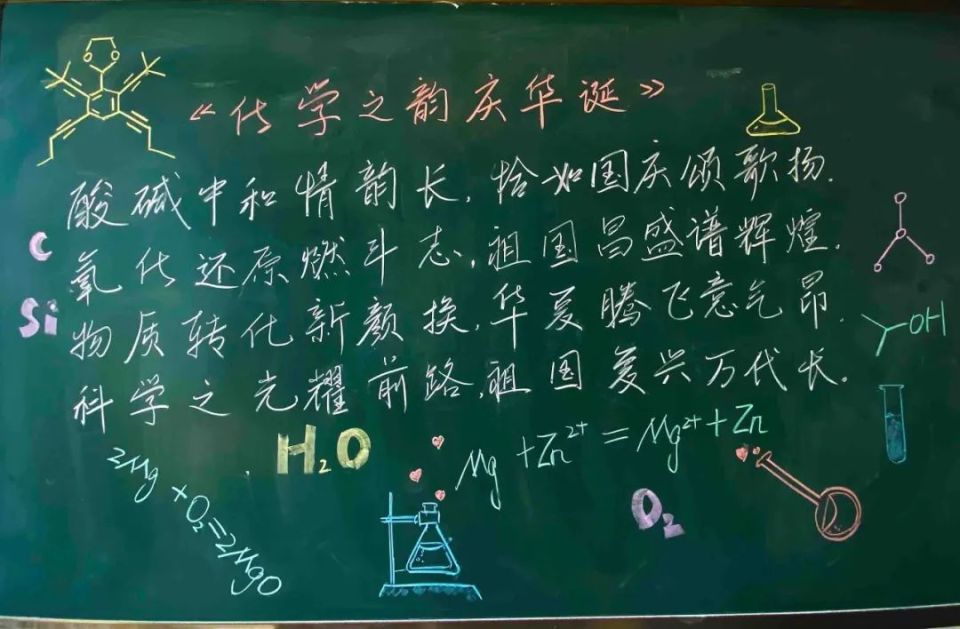 《化学之韵庆华诞》
酸碱中和情韵长,恰如国庆颂歌扬.
氧化还原燃斗志,祖国昌盛谱辉煌.
物质转化新颜换,华夏腾飞意气昂.
科学之光耀前路,祖国复兴万代长。
C
Si
OH
H₂O
Mg + Zn²⁺ = Mg²⁺ + Zn
2Mg + O₂ = 2MgO
O₂
O O